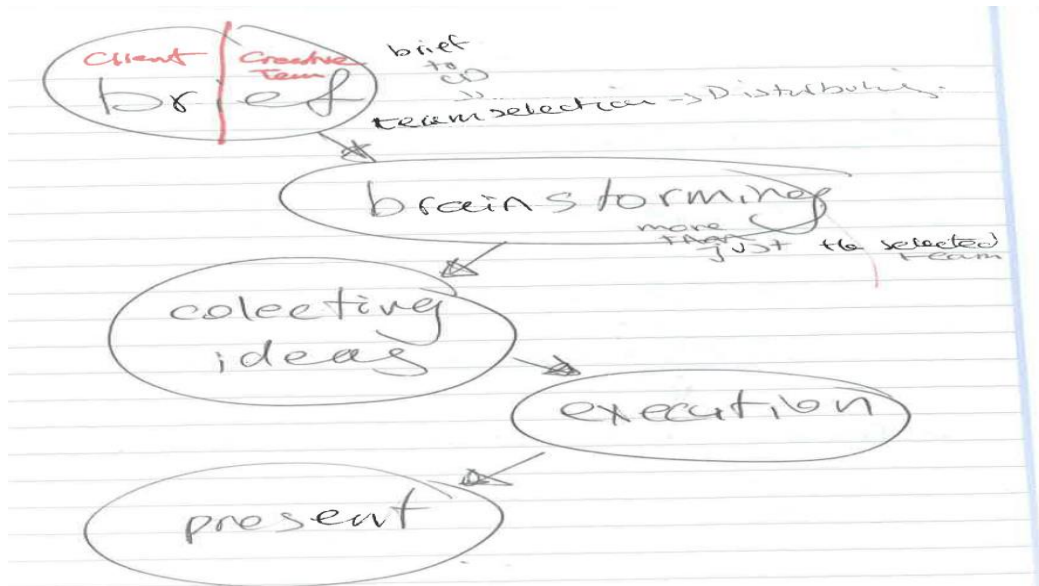 Client Creative
Team
brief
brief
to
CD
team selection → Disturbuting.
brainstorming
more
than
just the selected
team
colecting
ideas
execution
present